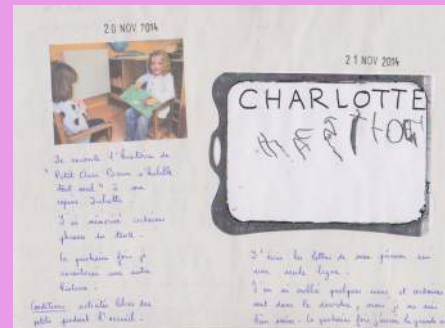 20 NOV 2014
Je raconte l'histoire de
" Petit Ours Brun s'habille
tout seul " à ma
copine Juliette
J'ai mémorisé certaines
phrases du texte.
La prochaine fois je
raconterai une autre
histoire.
Conditions : activités libres des
petits pendant l'accueil.
21 NOV 2014
CHARLOTTE
J'écris les lettres de mon prénom sur
une seule ligne.
J'en ai oublié quelques unes et certaines
sont dans le désordre, mais je me suis
bien . La prochaine fois j'aurai le grande